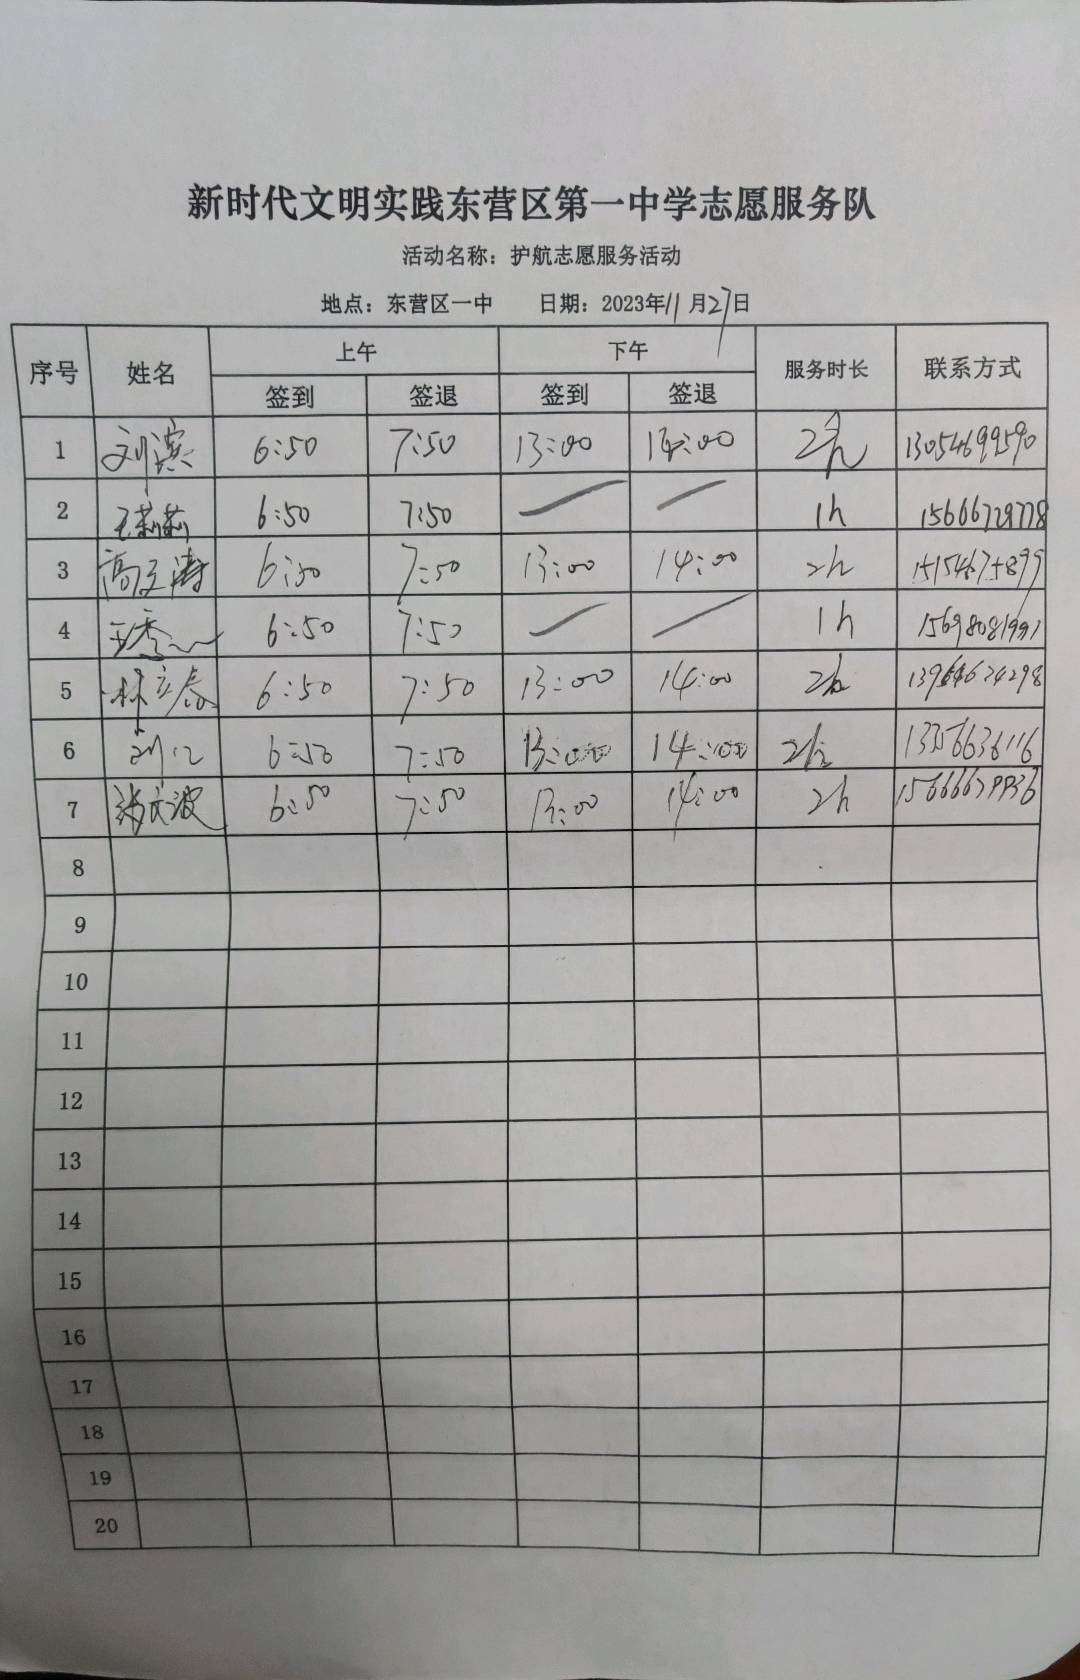 新时代文明实践东营区第一中学志愿服务队
活动名称：护航志愿服务活动
地点：东营区一中 日期：2023年11月27日
序号 姓名 上午 下午 服务时长 联系方式
签到 签退 签到 签退
1 刘滨 6:50 7:50 13:00 14:00 2h 13054699590
2 王莉莉 6:50 7:50 — — 1h 15666729778
3 高立涛 6:50 7:50 13:00 14:00 2h 15154675899
4 6:50 7:50 — — 1h 15698081991
5 林立春 6:50 7:50 13:00 14:00 2h
6 6:50 7:50 13:00 14:00 2h 13356636116
7 6:50 7:50 13:00 14:00 2h
8
9
10
11
12
13
14
15
16
17
18
19
20